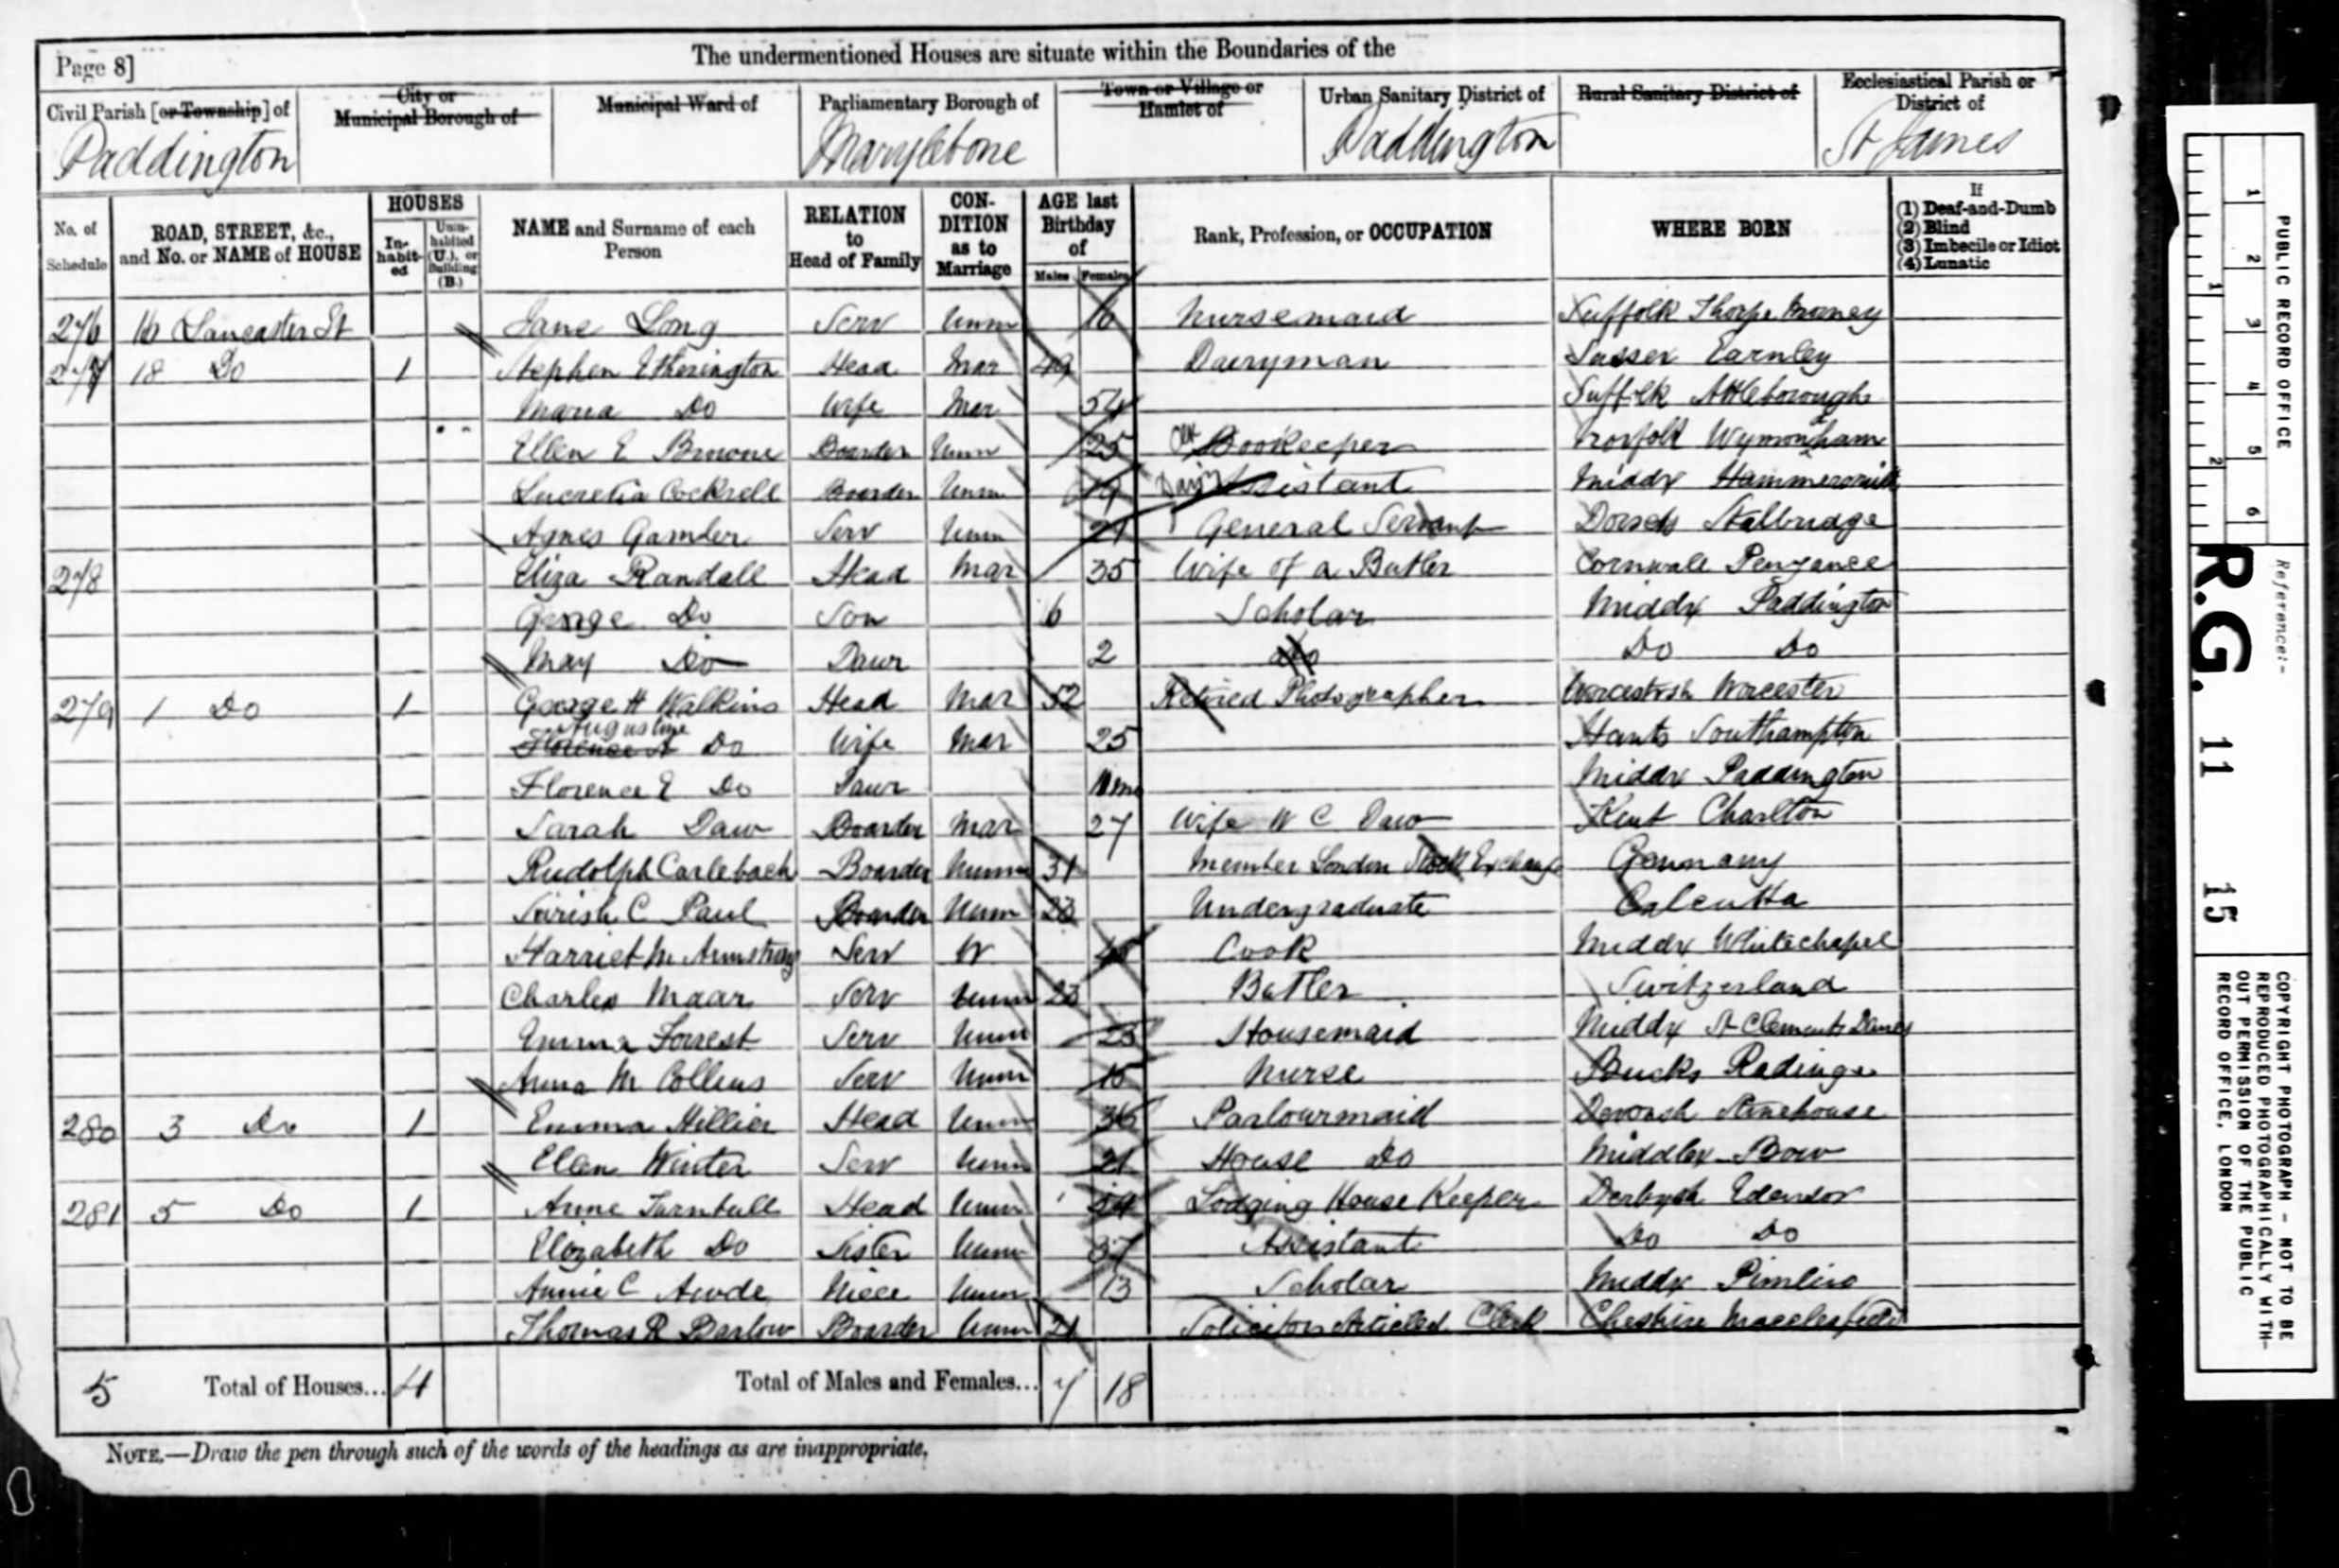 The undermentioned Houses are situate within the Boundaries of the
Page 8]
Civil Parish [or Township] of
City or Municipal Borough of
Municipal Ward of
Parliamentary Borough of
Town or Village or Hamlet of
Urban Sanitary District of
Rural Sanitary District of
Ecclesiastical Parish or District of
Paddington Marylebone Paddington St James
No. of Schedule
ROAD, STREET, &c., and No. or NAME of HOUSE
HOUSES
In-habit-ed
Unin-habited (U.), or Building (B.)
NAME and Surname of each Person
RELATION to Head of Family
CON-DITION as to Marriage
AGE last Birthday of
Males Females
Rank, Profession, or OCCUPATION
WHERE BORN
If
(1) Deaf-and-Dumb
(2) Blind
(3) Imbecile or Idiot
(4) Lunatic
276 16 Lancaster St Jane Long Serv Unm 16 Nursemaid Suffolk Thorpe
277 18 Do 1 Stephen Etherington Head Mar 49 Dairyman Sussex Earnley
Maria Do Wife Mar 54 Suffolk Attleborough
Ellen E Browne Boarder Unm 25 Bookeeper Norfolk Wymondham
Lucretia Cockrell Boarder Unm 19 Assistant Middx Hammersmith
Agnes Gamler Serv Unm 21 General Servant Dorset Stalbridge
278 Eliza Randall Head Mar 35 Wife of a Butler Cornwall Penzance
George Do Son 6 Scholar Middx Paddington
May Do Daur 2 Do Do Do
279 1 Do 1 George H Walkins Head Mar 52 Retired Photographer Worcestrsh Worcester
Augustine
Florence A Do Wife Mar 25 Hants Southampton
Florence E Do Daur Middx Paddington
Sarah Daw Boarder Mar 27 Wife W C Daw Kent Charlton
Rudolph Carlebach Boarder Unm 31 Member London Stock Exchange Germany
C Paul Boarder Unm 23 Undergraduate Calcutta
Harriet M Armstrong Serv W Cook Middx Whitechapel
Charles Maar Serv Unm 23 Butler Switzerland
Emma Forrest Serv Unm 23 Housemaid Middx St Clement Danes
Anna M Collins Serv Unm 15 Nurse Bucks Radinge
280 3 Do 1 Emma Hillier Head Unm 36 Parlourmaid Devonsh Stonehouse
Ellen Winter Serv Unm 21 House Do Middlex Bow
281 5 Do 1 Anne Turnbull Head Unm 54 Lodging House Keeper Derbysh Edensor
Elizabeth Do Sister Unm 37 Assistant Do Do
Annie C Awde Niece Unm 13 Scholar Middx Pimlico
Thomas R Barlow Boarder Unm 21 Solicitor Articled Clerk Cheshire Macclesfield
5 Total of Houses... 4 Total of Males and Females... 7 18
NOTE.—Draw the pen through such of the words of the headings as are inappropriate.
PUBLIC RECORD OFFICE
1 2 3 4 5 6
1 2
Reference:-
R.G. 11 15
COPYRIGHT PHOTOGRAPH - NOT TO BE
REPRODUCED PHOTOGRAPHICALLY WITH-
OUT PERMISSION OF THE PUBLIC
RECORD OFFICE, LONDON